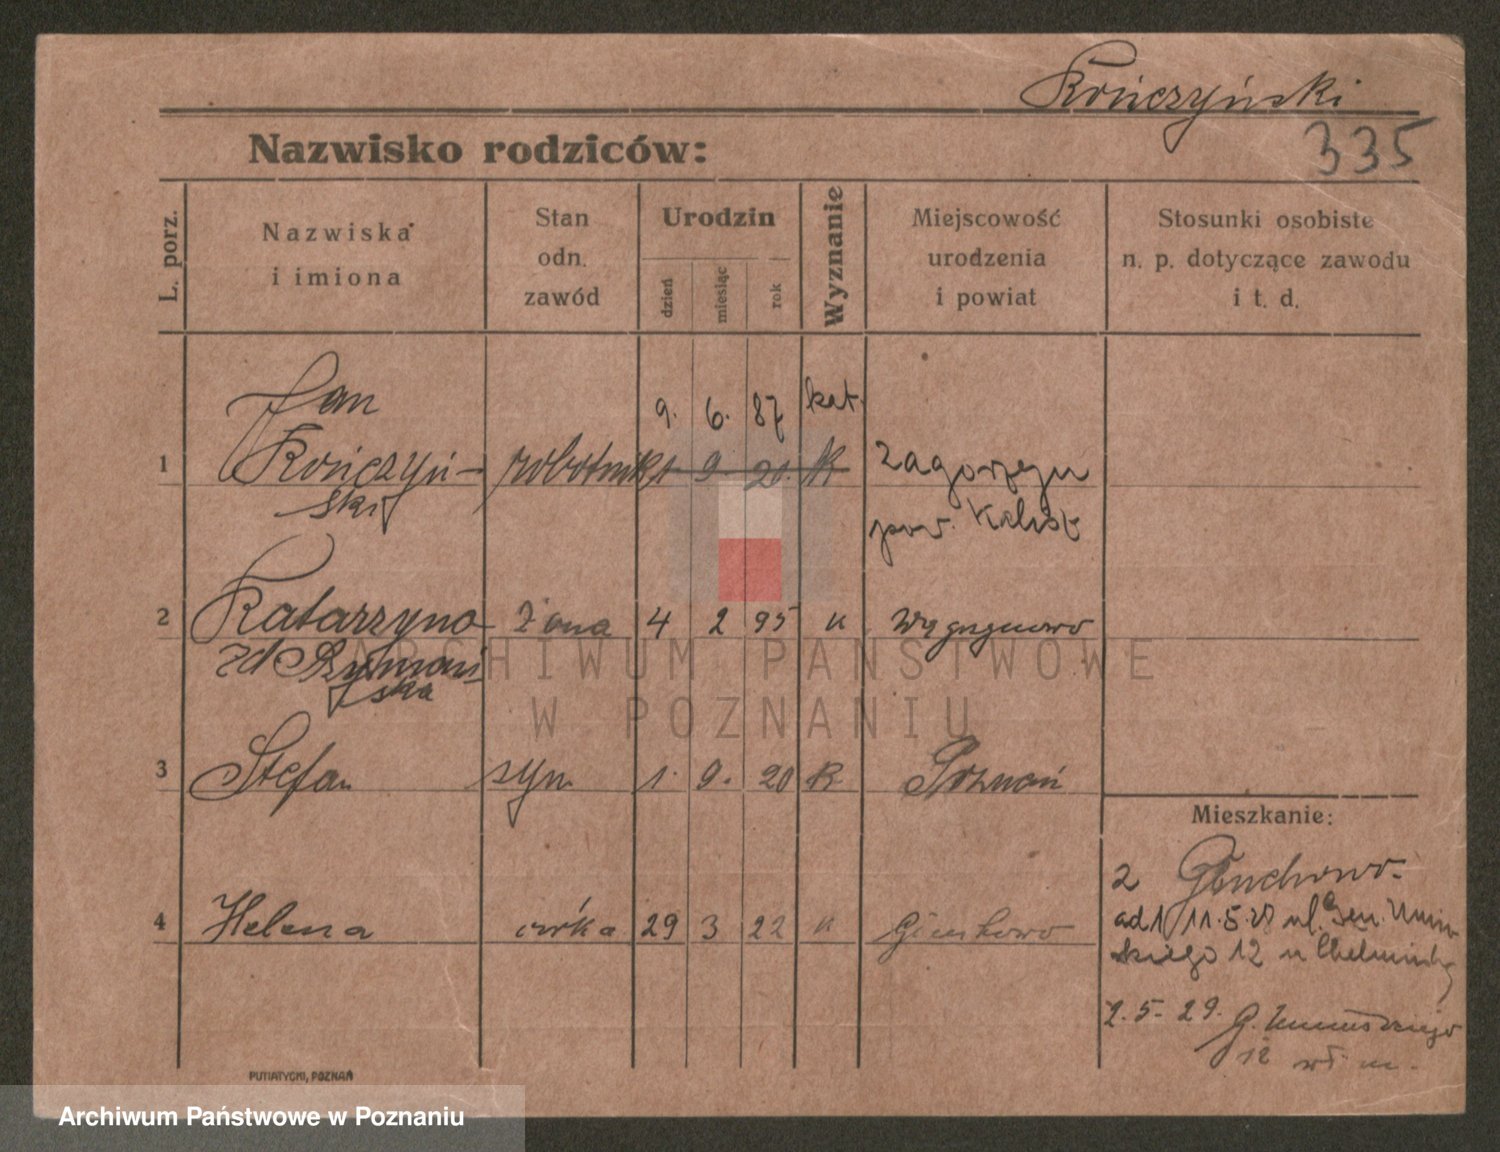 Kończyński
335
Nazwisko rodziców:
L. porz.
Nazwiska
i imiona
Stan
odn.
zawód
Urodzin
dzień
miesiąc
rok
Wyznanie
Miejscowość
urodzenia
i powiat
Stosunki osobiste
n. p. dotyczące zawodu
i t. d.
Jan
9. 6. 87 kat.
1 Kończyń- robotnik 1 9 20. K
ski
pow. Kalisz
2 Katarzyna żona 4 2 95 K
zd Szymań
ska
3 Stefan syn 1. 9. 20 K Poznań
4 Helena córka 29 3 22 K
Mieszkanie:
2 Głuchowo
ad 1 11.5.28 ul. Gen. Umiń-
skiego 12 u
2.5-29. G. Umińskiego
12
PUTIATYCKI, POZNAŃ
ARCHIWUM PAŃSTWOWE
W POZNANIU
Archiwum Państwowe w Poznaniu